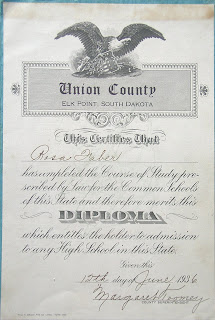 Union County
ELK POINT, SOUTH DAKOTA
This Certifies That
Rosa Fabert
has completed the Course of Study pre-
scribed by Law for the Common Schools
of this State and therefore merits this
DIPLOMA
which entitles the holder to admission
to any High School in this State.
Given this
12th day of June, 1936
Margaret